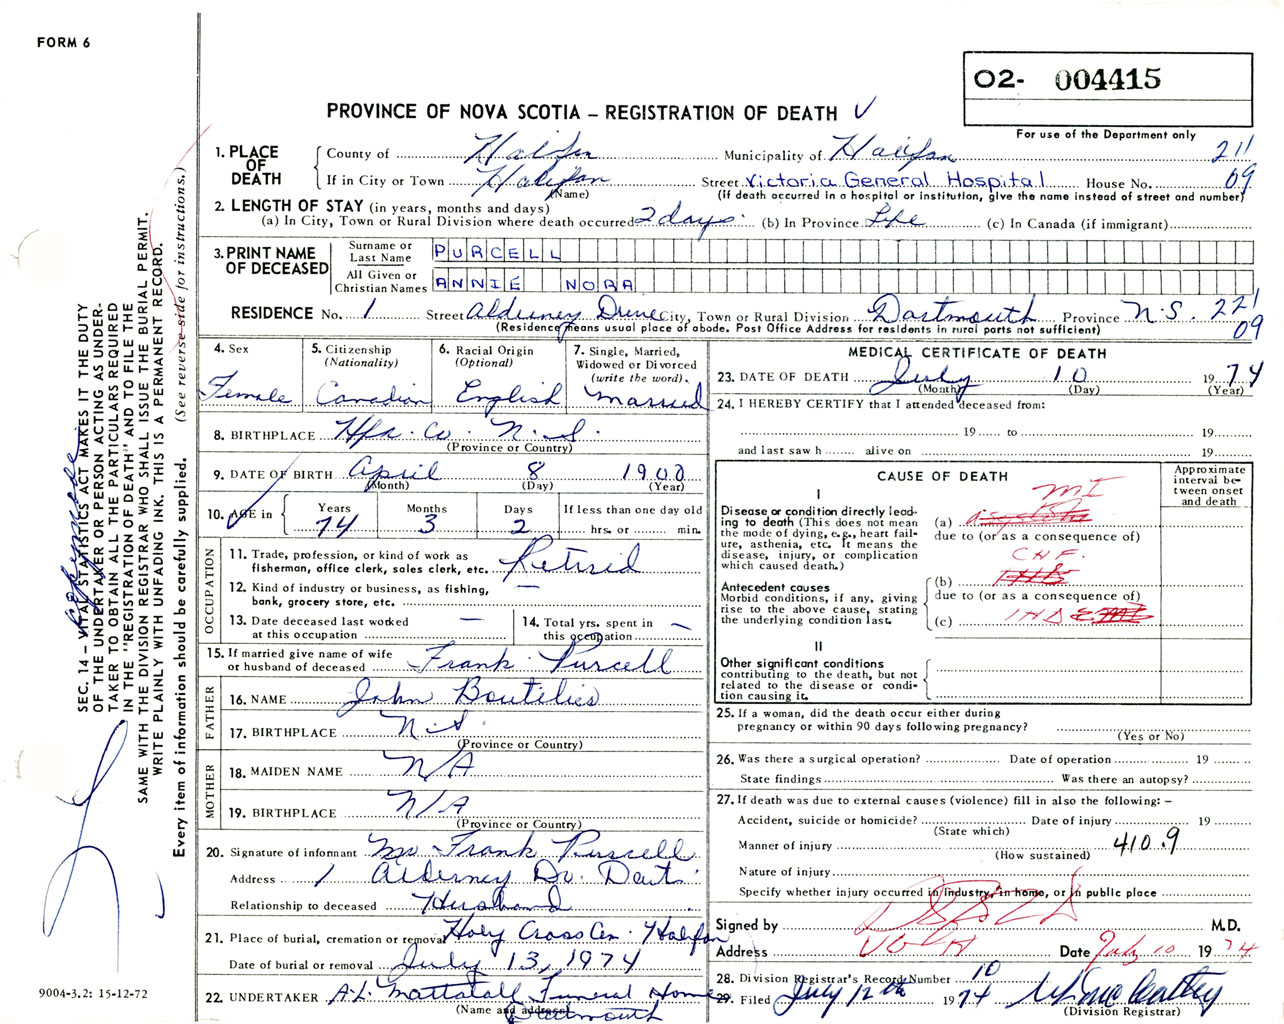 FORM 6
O2- 004415
For use of the Department only
PROVINCE OF NOVA SCOTIA – REGISTRATION OF DEATH
SEC. 14 – VITAL STATISTICS ACT MAKES IT THE DUTY
OF THE UNDERTAKER OR PERSON ACTING AS UNDER-
TAKER TO OBTAIN ALL THE PARTICULARS REQUIRED
IN THE "REGISTRATION OF DEATH" AND TO FILE THE
SAME WITH THE DIVISION REGISTRAR WHO SHALL ISSUE THE BURIAL PERMIT.
WRITE PLAINLY WITH UNFADING INK. THIS IS A PERMANENT RECORD.
Every item of information should be carefully supplied. (See reverse side for instructions.)
1. PLACE OF DEATH
County of Halifax Municipality of Halifax 211
If in City or Town Halifax Street Victoria General Hospital House No. 09
(Name) (If death occurred in a hospital or institution, give the name instead of street and number)
2. LENGTH OF STAY (in years, months and days)
(a) In City, Town or Rural Division where death occurred 2 days. (b) In Province Life (c) In Canada (if immigrant)
3. PRINT NAME OF DECEASED
Surname or Last Name PURCELL
All Given or Christian Names ANNIE NORA
RESIDENCE No. 1 Street Alderney Drive City, Town or Rural Division Dartmouth Province N.S. 221
09
(Residence means usual place of abode. Post Office Address for residents in rural parts not sufficient)
4. Sex Female
5. Citizenship (Nationality) Canadian
6. Racial Origin (Optional) English
7. Single, Married, Widowed or Divorced (write the word) Married
8. BIRTHPLACE Hfx. Co. N.S.
(Province or Country)
9. DATE OF BIRTH April 8 1900
(Month) (Day) (Year)
10. AGE in Years Months Days If less than one day old
74 3 2 hrs. or min.
OCCUPATION
11. Trade, profession, or kind of work as fisherman, office clerk, sales clerk, etc. Retired
12. Kind of industry or business, as fishing, bank, grocery store, etc. —
13. Date deceased last worked at this occupation —
14. Total yrs. spent in this occupation —
15. If married give name of wife or husband of deceased Frank Purcell
FATHER
16. NAME John Boutilier
17. BIRTHPLACE N.S.
(Province or Country)
MOTHER
18. MAIDEN NAME N/A
19. BIRTHPLACE N/A
(Province or Country)
20. Signature of informant Mr Frank Purcell
Address 1 Alderney Dr. Dart.
Relationship to deceased Husband
21. Place of burial, cremation or removal Holy Cross Cem. Halifax
Date of burial or removal July 13, 1974
22. UNDERTAKER A.L. Mattatall Funeral Home
(Name and address) Dartmouth
9004-3.2: 15-12-72
MEDICAL CERTIFICATE OF DEATH
23. DATE OF DEATH July 10 1974
(Month) (Day) (Year)
24. I HEREBY CERTIFY that I attended deceased from:
19 to 19
and last saw h alive on 19
CAUSE OF DEATH
Approximate interval between onset and death
I
Disease or condition directly lead-
ing to death (This does not mean
the mode of dying, e.g., heart fail-
ure, asthenia, etc. It means the
disease, injury, or complication
which caused death.)
MI
(a)
due to (or as a consequence of)
CHF.
Antecedent causes
Morbid conditions, if any, giving
rise to the above cause, stating
the underlying condition last.
(b)
due to (or as a consequence of)
(c) IHD
II
Other significant conditions
contributing to the death, but not
related to the disease or condi-
tion causing it.
25. If a woman, did the death occur either during
pregnancy or within 90 days following pregnancy?
(Yes or No)
26. Was there a surgical operation? Date of operation 19
State findings Was there an autopsy?
27. If death was due to external causes (violence) fill in also the following: –
Accident, suicide or homicide? Date of injury 19
(State which)
Manner of injury 410.9
(How sustained)
Nature of injury
Specify whether injury occurred in industry, in home, or in public place
Signed by M.D.
Address VGH Date July 10 1974
28. Division Registrar's Record Number 10
29. Filed July 12th 1974
(Division Registrar)